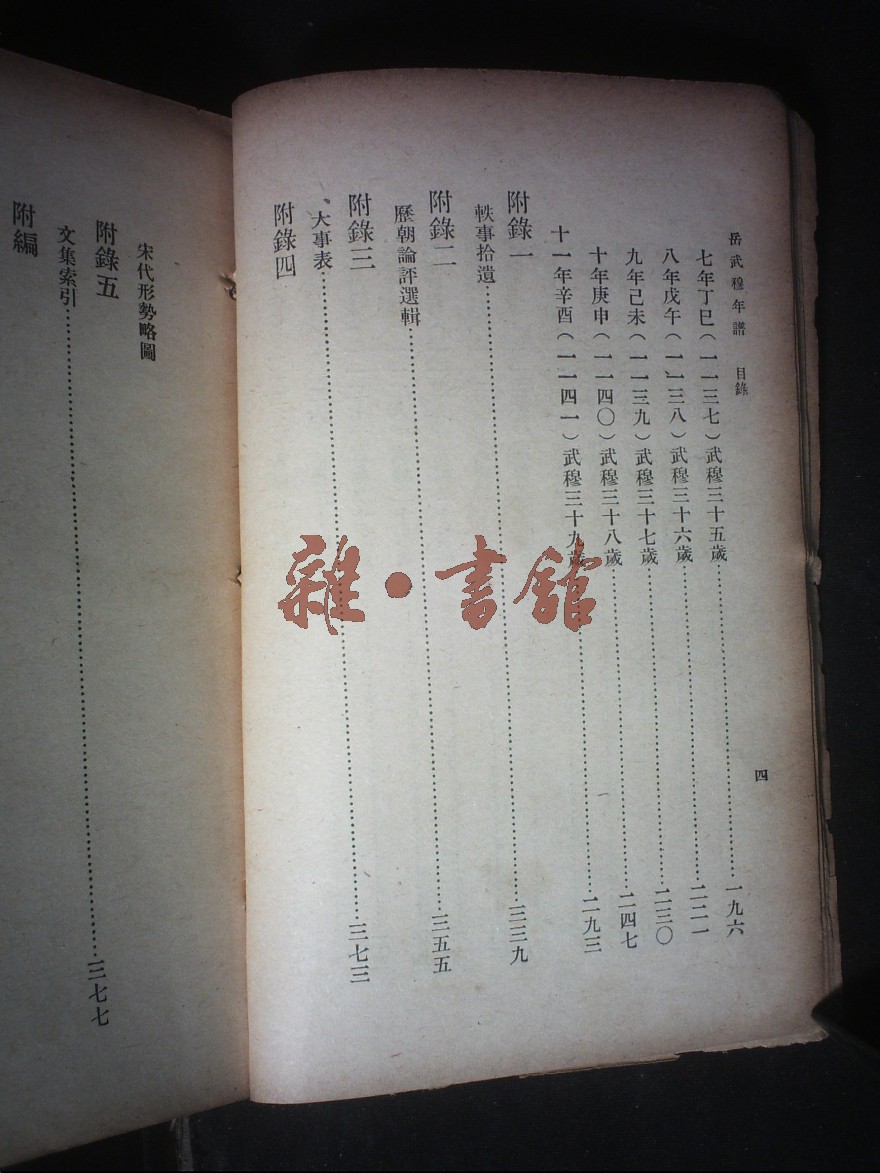 岳武穆年譜 目錄
七年丁巳(一一三七)武穆三十五歲……一九六
八年戊午(一一三八)武穆三十六歲……二二一
九年己未(一一三九)武穆三十七歲……二三〇
十年庚申(一一四〇)武穆三十八歲……二四七
十一年辛酉(一一四一)武穆三十九歲……二九三
附錄一
軼事拾遺……三三九
附錄二
歷朝論評選輯……三五五
附錄三
大事表……三七三
附錄四
四
宋代形勢略圖
附錄五
文集索引……三七七
附編
雜·書館